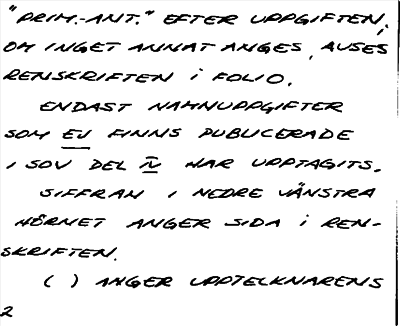 "PRIM.-ANT." EFTER UPPGIFTEN;
OM INGET ANNAT ANGES, AVSES
RENSKRIFTEN I FOLIO.
ENDAST NAMNUPPGIFTER
SOM EJ FINNS PUBLICERADE
I SOV DEL IV HAR UPPTAGITS.
SIFFRAN I NEDRE VÄNSTRA
HÖRNET ANGER SIDA I REN-
SKRIFTEN.
( ) ANGER UPPTECKNARENS
2